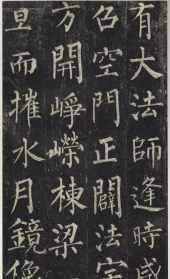 有大法師逢時感
召空門正闢法宇
方開崢嶸棟梁
旦而摧水月鏡像